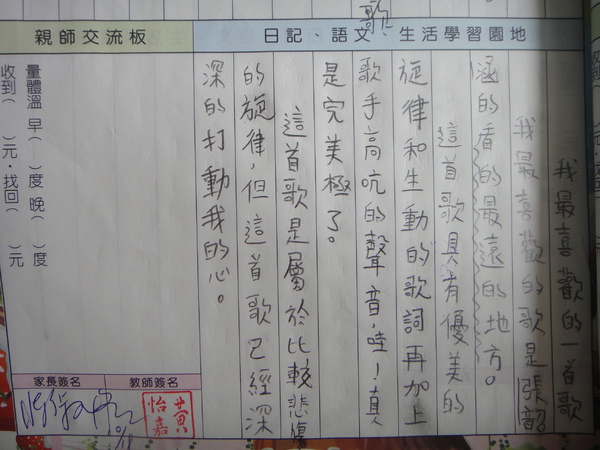 歌
日記、語文、生活學習園地
我最喜歡的一首歌
我最喜歡的歌是張韶
涵的看的最遠的地方。
這首歌具有優美的
旋律和生動的歌詞再加上
歌手高吭的聲音，哇！真
是完美極了。
這首歌是屬於比較悲傷
的旋律，但這首歌已經深
深的打動我的心。
親師交流板
量體溫 早（　）度 晚（　）度
收到（　）元·找回（　）元
家長簽名
教師簽名
黃怡嘉